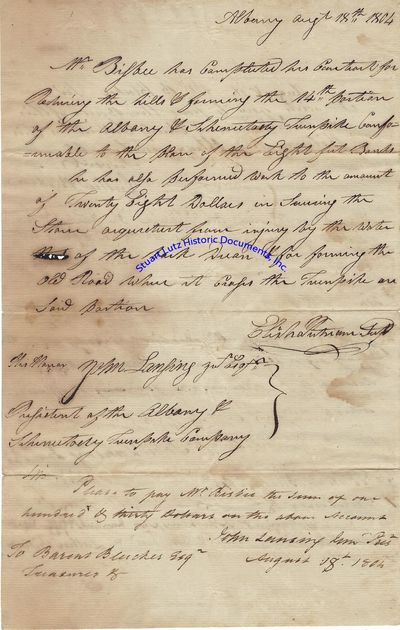 Albany augt 18th 1804
Mr Bisbee has Completed his Contract for
Reducing the hills & forming the 14th Portion
of the Albany & Schenectady Turnpike Confor-
-mable to the Plan of the Eight feet Banks
he has also Performed Work to the amount
of Twenty Eight Dollars in Securing the
Stone from injury by the Water
of the & for forming the
Old Road Where it Crosses the Turnpike on
Said Portion
Elisha Putnam
Stuart Lutz Historic Documents, Inc.
John Lansing Junr Esqr
President of the Albany &
Schenectady Turnpike Company
Sir
Please to pay Mr Bisbie the sum of one
hundred & thirty Dollars on the above Account
John Lansing Junr Prest
To Barent Bleecker Esqr
August 18th 1804
Treasurer &